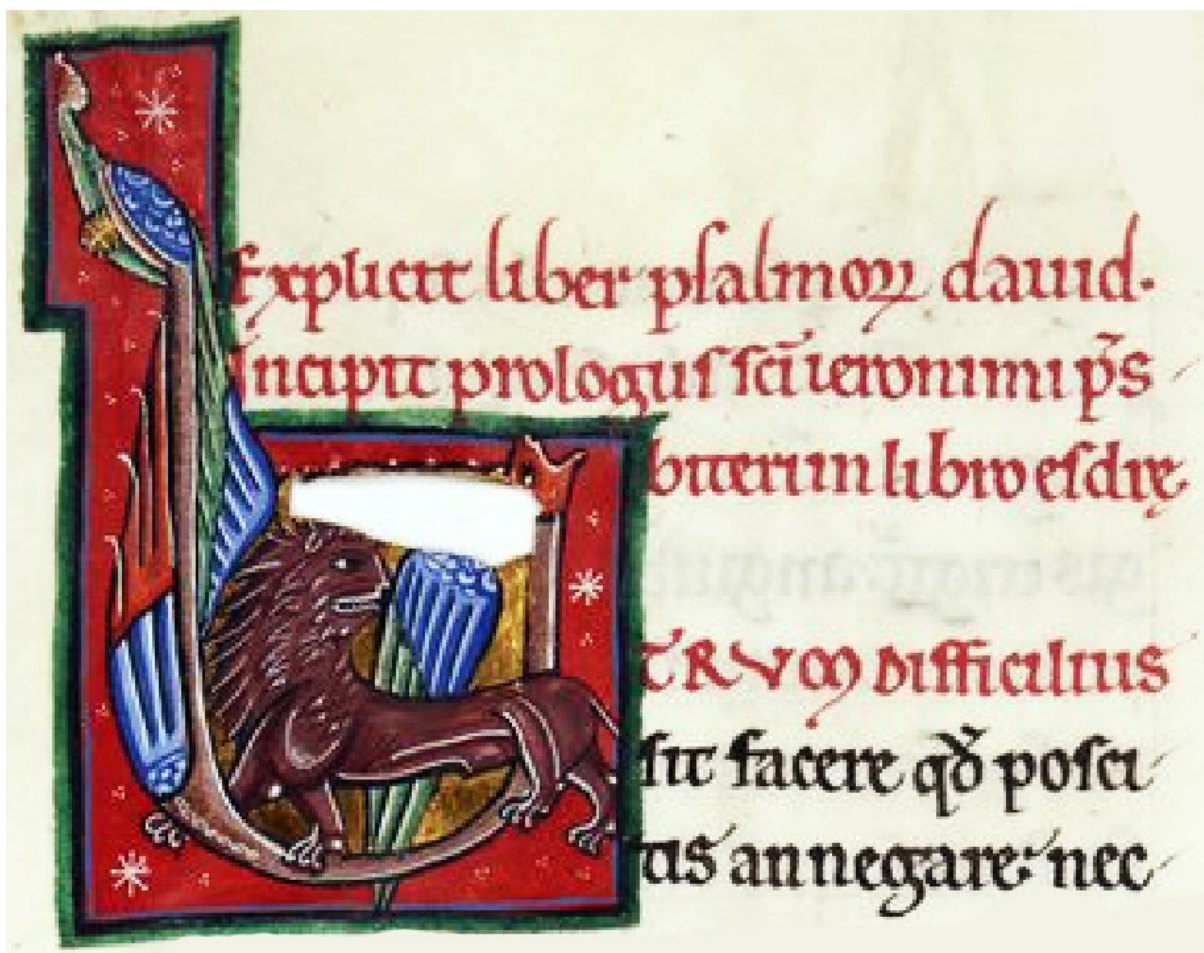 Explicit liber psalmoꝝ dauid.
Incipit prologus sc̄i ieronimi p̄s
biteri in libro esdre
TRVM difficilius
sit facere qđ posci
tis an negare: nec